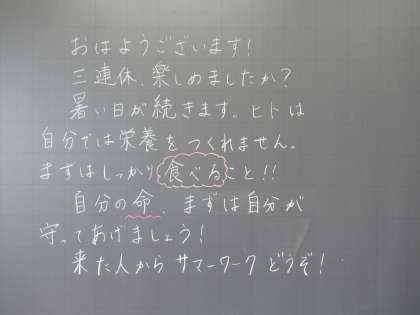 おはようございます!
三連休、楽しめましたか?
暑い日が続きます。ヒトは
自分では栄養をつくれません。
まずはしっかり食べること!!
自分の命、まずは自分が
守ってあげましょう!
来た人からサマーワークどうぞ!